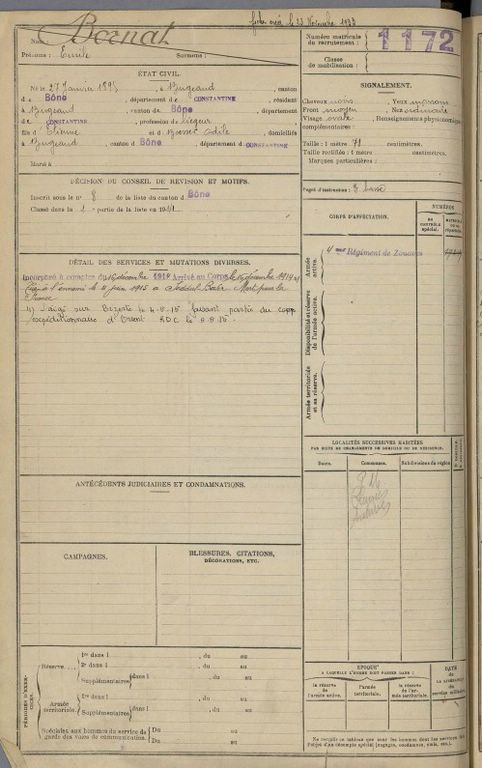 fiche créée le 23 Novembre 1933
Nom : Bornat
Prénoms : Emile
Surnoms :
Numéro matricule
du recrutement :
1172
Classe
de mobilisation :
ÉTAT CIVIL.
Né le 27 Janvier 1895, à Bugeaud, canton
de Bône, département de CONSTANTINE, résidant
à Bugeaud, canton de Bône, département
de CONSTANTINE, profession de liégeur
fils d'Etienne et de Odile, domiciliés
à Bugeaud, canton d Bône, département de CONSTANTINE
Marié à
SIGNALEMENT.
Cheveux noirs, Yeux marrons
Front moyen, Nez
Visage ovale, Renseignements physionomiques
complémentaires :
Taille : 1 mètre 71 centimètres.
Taille rectifiée : 1 mètre centimètres.
Marques particulières :
Degré d'instruction :
DÉCISION DU CONSEIL DE REVISION ET MOTIFS.
Inscrit sous le n° 8 de la liste du canton d Bône
Classé dans la 1 partie de la liste en 1914
CORPS D'AFFECTATION.
NUMÉROS
au contrôle spécial.
Armée active.
4me Régiment de Zouaves
Disponibilité et réserve de l'armée active.
Armée territoriale et sa réserve.
DÉTAIL DES SERVICES ET MUTATIONS DIVERSES.
Incorporé à compter du 16 décembre 1914 Arrivé au Corps le 16 décembre 1914
Tué à l'ennemi le juin 1915 à Seddul-Bahr Mort pour la
France
Dirigé sur Bizerte le 4-5-15 faisant partie du corps
expéditionnaire d'Orient
LOCALITÉS SUCCESSIVES HABITÉES
PAR SUITE DE CHANGEMENTS DE DOMICILE OU DE RÉSIDENCE.
Dates.
Communes.
Subdivisions de région
ANTÉCÉDENTS JUDICIAIRES ET CONDAMNATIONS.
CAMPAGNES.
BLESSURES, CITATIONS,
DÉCORATIONS, ETC.
PÉRIODES D'EXERCICES.
Réserve
1re dans l , du au
2e dans l , du au
Supplémentaires dans l , du au
Armée territoriale.
1re dans l , du au
Supplémentaires dans l , du au
Spéciales aux hommes du service de
garde des voies de communication.
Du au
Du au
ÉPOQUE
À LAQUELLE L'HOMME DOIT PASSER DANS :
la réserve de l'armée active.
l'armée territoriale.
la réserve de l'armée territoriale.
DATE
DE LA LIBÉRATION
du service militaire.